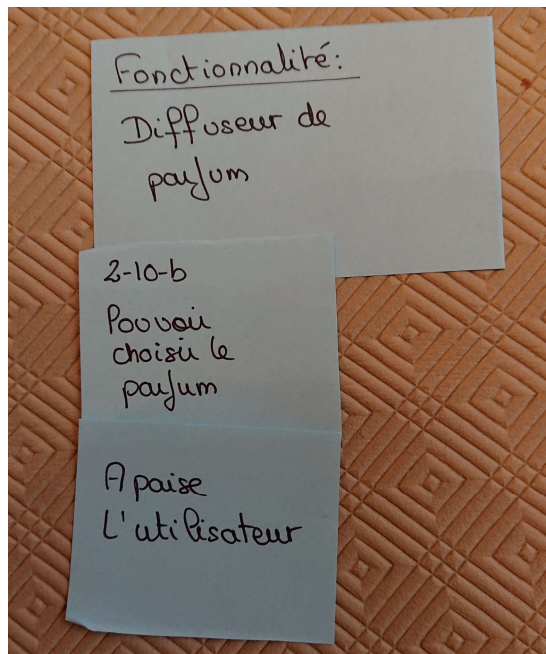 Fonctionnalité:
Diffuseur de
parfum
2-10-b
Pouvoir
choisir le
parfum
Apaise
L'utilisateur